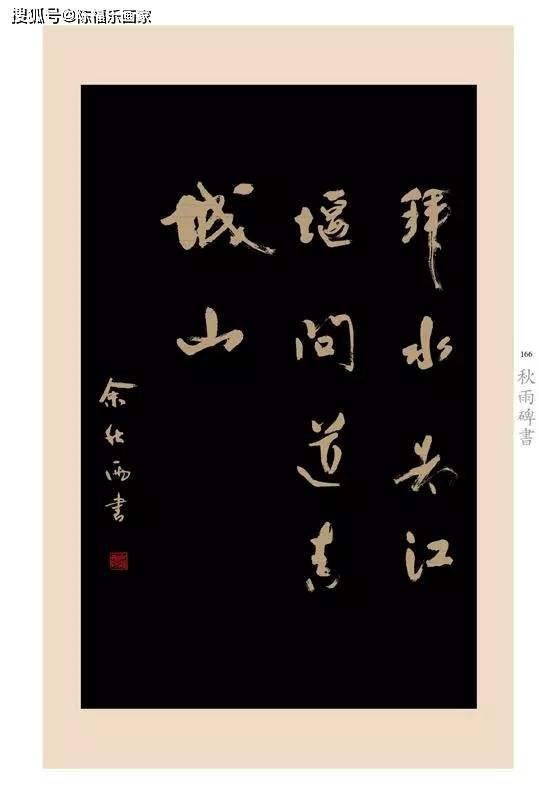 搜狐号@陈福乐画家
拜水都江
堰問道青
城山
余秋雨書
166
秋雨碑書